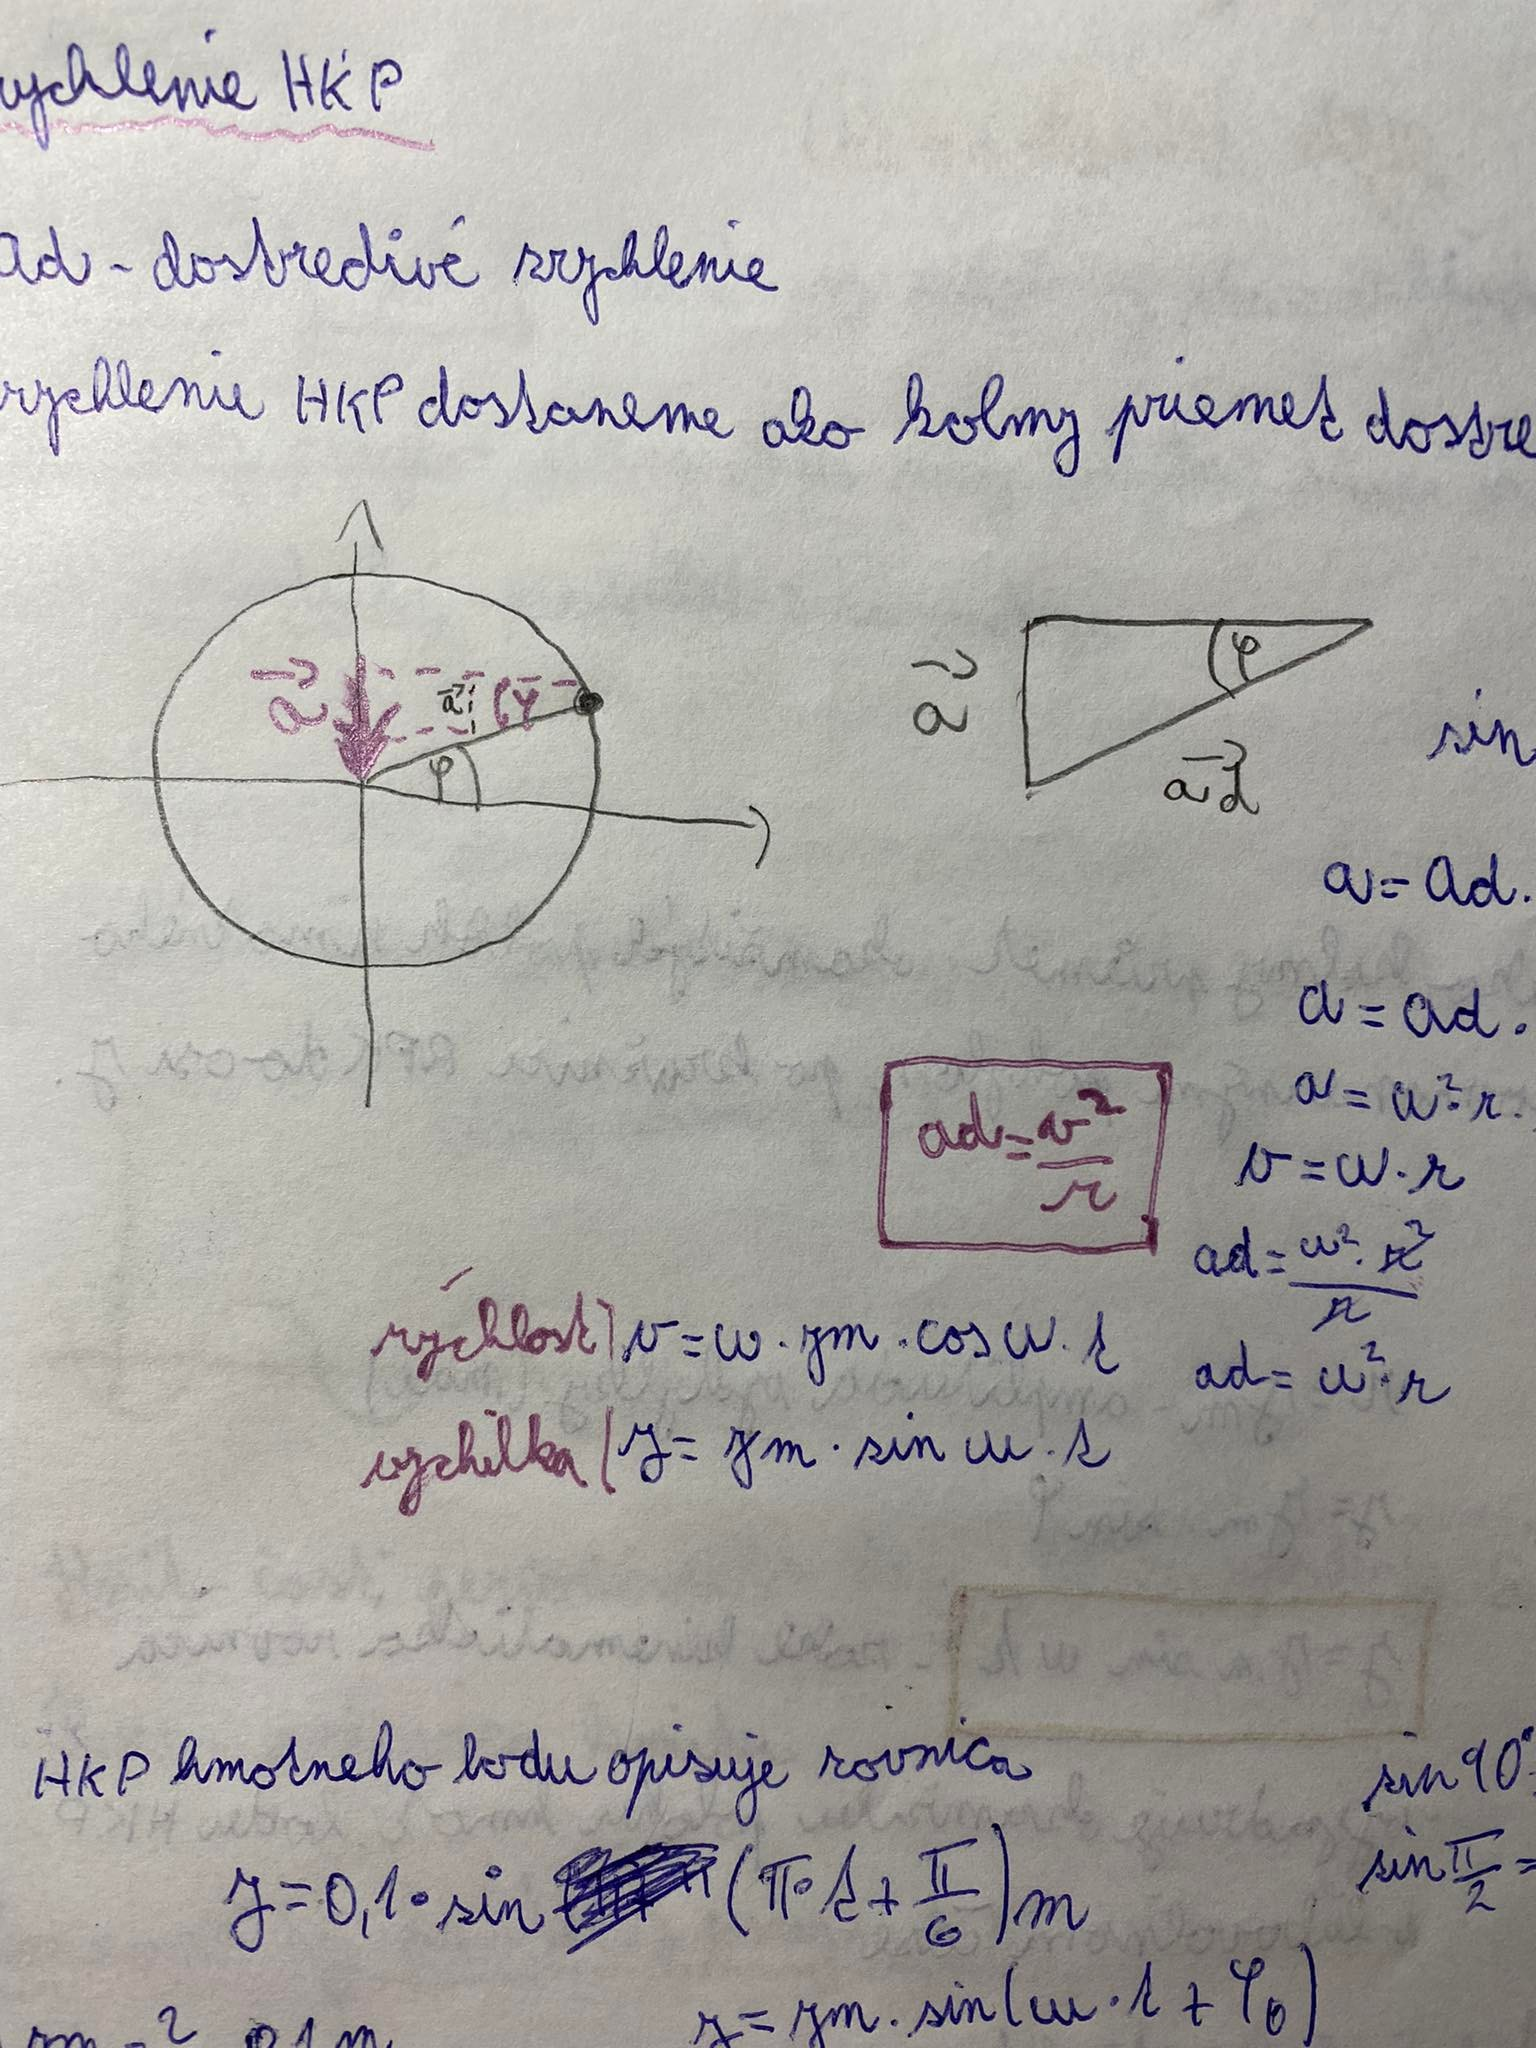 rychlenie HKP
ad - dostredivé zrychlenie
rychlenie HKP dostaneme ako kolmy priemet dostre
a
a
φ
φ
φ
a
ad
sin
a = ad.
a = ad.
a = w². r.
ad = v²/r
v = w. r
ad = w². r²/r
rýchlosť) v = w. ym. cos w. t
ad = w². r
vychilka ( y = ym. sin w. t
HKP hmotneho bodu opisuje rovnica
sin 90°=
y = 0,1. sin (π. t + π/6) m
sin π/2 =
y = ym. sin (w. t + φ0)
ym = ? 0,1 m